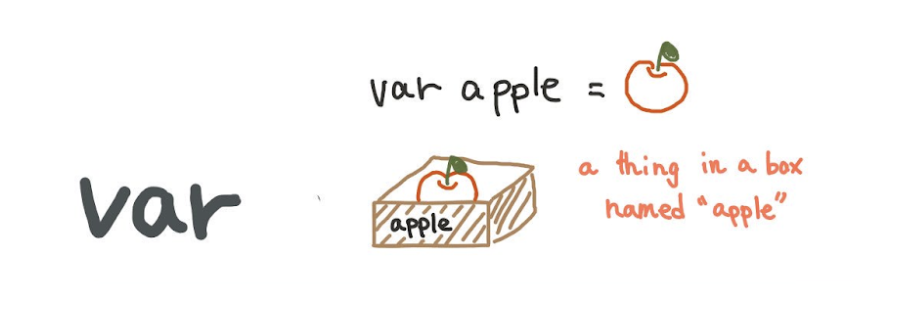 var
var apple =
apple
a thing in a box
named "apple"